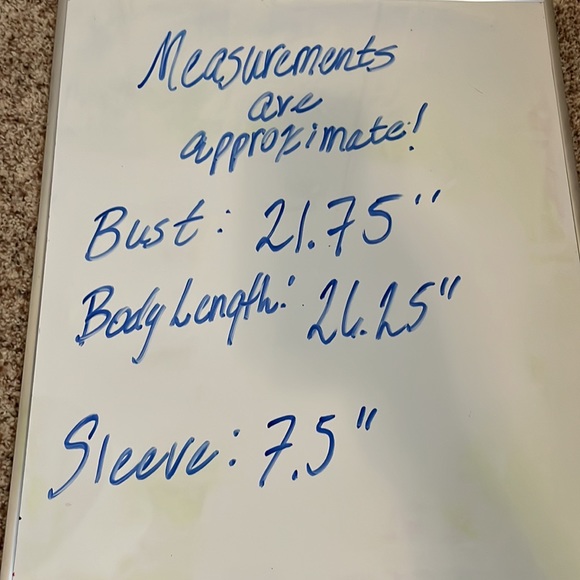 Measurements
are
approximate!
Bust: 21.75"
Body Length: 26.25"
Sleeve: 7.5"